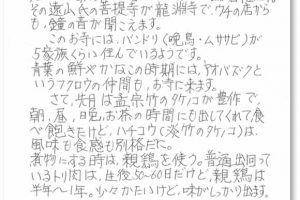 その遠山氏の菩提寺が龍淵寺で、ウチの店から
も、鐘の音が聞こえます。
このお寺には、バンドリ(晩鳥・ムササビ)が
5家族くらい住んでいるようです。
青葉の鮮やかなこの時期には、アオバズクと
いうフクロウの仲間も、お寺に来ます。
さて、先月は孟宗竹のタケノコが豊作で、
朝、昼、晩、お茶の時間にも出してくれて食
べ飽きたけど、ハチコウ(淡竹のタケノコ)は、
風味も食感も別格だに。
煮物にする時は、親鶏を使う。普通出回って
いるトリ肉は、生後50〜60日だけど、親鶏は
半年〜1年。少々かたいけど、味がしっかり出ます。